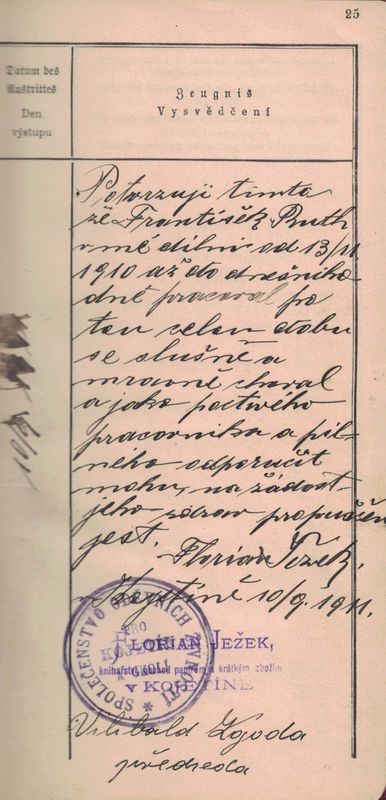 25
Datum des
Austrittes
Den
výstupu
Zeugniß
Vysvědčení
Potvrzuji timto
že František Ruth
v mé dilni od 13/11
1910 až do dnešniho
dně pracoval po
tou celou dobu
se slušně a
mravně choval
a jako poctivého
pracovnika a pil-
ného odporučit
mohu, na žádost
jeho zdráv propuštěn
jest.
Florian Ježek,
v Kojetině 10/9. 1911.
10/9
SPOLEČENSTVO ODĚVNÍCH ŽIVNOSTÍ
PRO
KOJETÍN
A OKOLÍ
FLORIAN JEŽEK,
knihařství obchod papírem a krátkým zbožím
V KOJETÍNĚ
Vilibald Zgoda
předseda